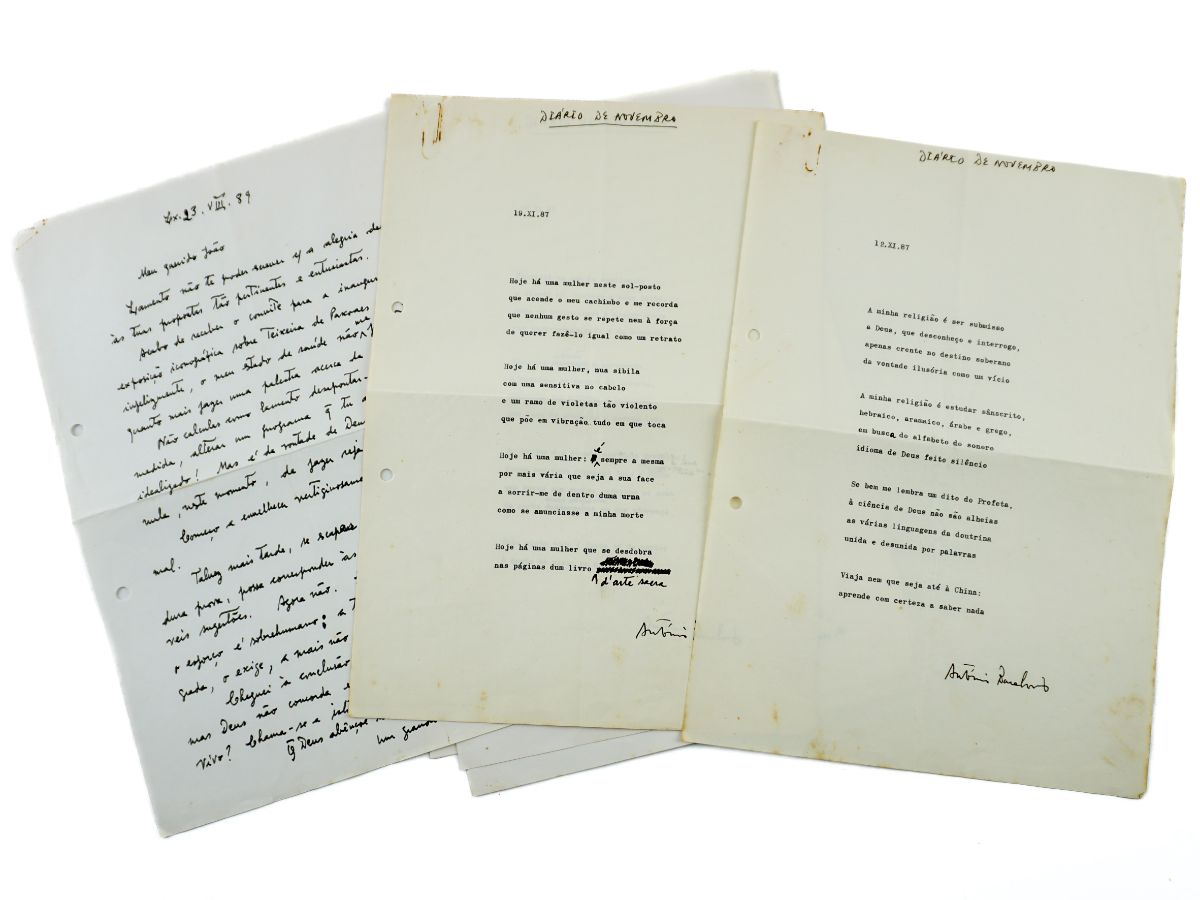 Lx. 23. VIII. 89
Meu querido João
Lamento não te poder escrever c/ a alegria de
às tuas propostas tão pertinentes e entusiastas.
Acabo de receber o convite para a inaugur
exposição iconográfica sobre Teixeira de Pascoaes
infelizmente, o meu estado de saúde não me
quanto mais fazer uma palestra acerca da
Não calculas como lamento desapontar-
medida, alterar um programa q̃ tu
idealizado! Mas é da vontade de Deus
nula, neste momento, de fazer seja
Começo a envelhecer vertiginosam
mal.
Talvez mais tarde, se escapar
dura prova, possa corresponder às
veis sugestões. Agora não.
o esforço é sobrehumano: a T
grada, o exige, a mais não
Cheguei à conclusão
mas Deus não concorda e
vivo? Chama-se a isto
Q̃ Deus abençoe
um grande
DIÁRIO DE NOVEMBRO
19.XI.87
Hoje há uma mulher neste sol-posto
que acende o meu cachimbo e me recorda
que nenhum gesto se repete nem à força
de querer fazê-lo igual como um retrato
Hoje há uma mulher, nua sibila
com uma sensitiva no cabelo
e um ramo de violetas tão violento
que põe em vibração tudo em que toca
Hoje há uma mulher: é sempre a mesma
por mais vária que seja a sua face
a sorrir-me de dentro duma urna
como se anunciasse a minha morte
Hoje há uma mulher que se desdobra
nas páginas dum livro d'arte sacra
António
DIÁRIO DE NOVEMBRO
12.XI.87
A minha religião é ser submisso
a Deus, que desconheço e interrogo,
apenas crente no destino soberano
da vontade ilusória como um vício
A minha religião é estudar sânscrito,
hebraico, aramaico, árabe e grego,
em busca do alfabeto do sonoro
idioma de Deus feito silêncio
Se bem me lembra um dito do Profeta,
à ciência de Deus não são alheias
as várias linguagens da doutrina
unida e desunida por palavras
Viaja nem que seja até à China:
aprende com certeza a saber nada
António Barahona